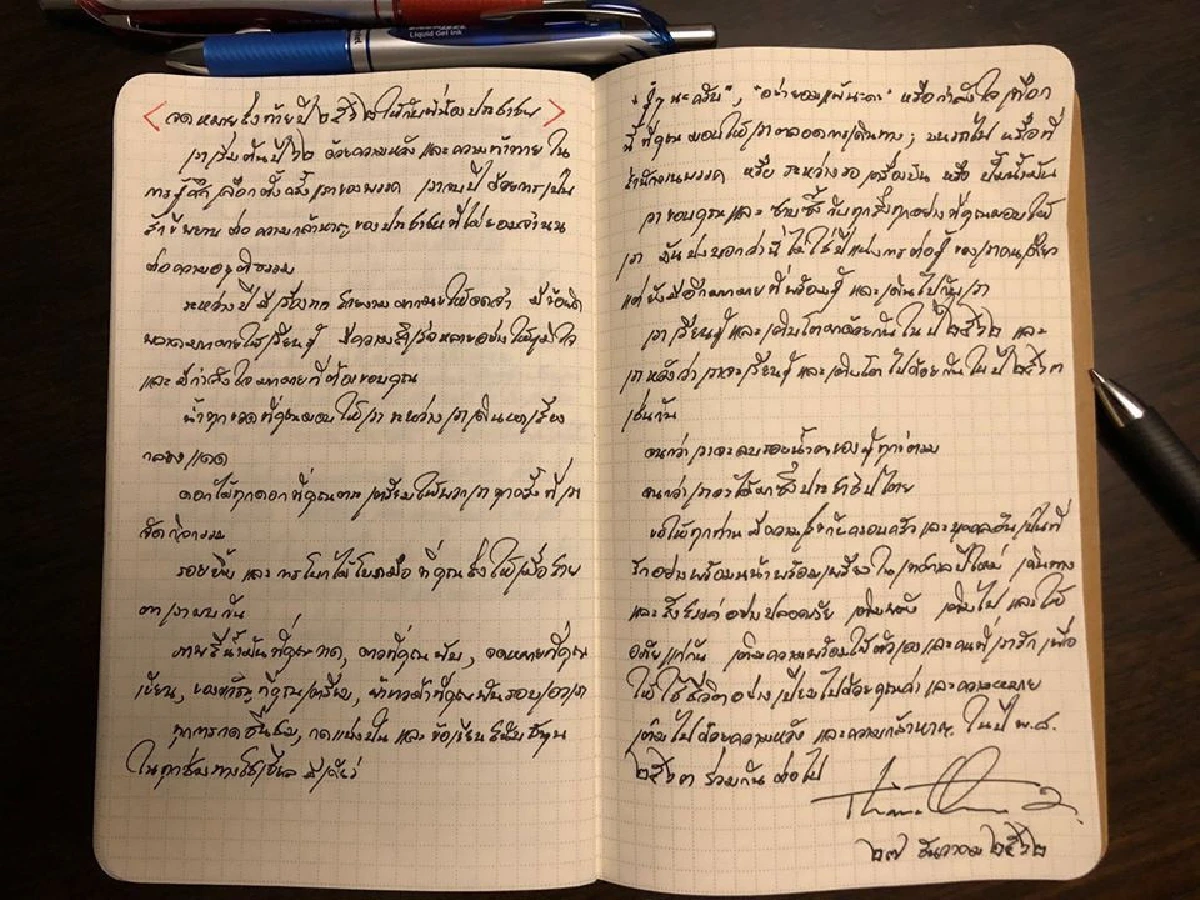 Liquid Gel Ink
< จดหมายส่งท้ายปี ๒๕๖๒ ให้กับพี่น้องประชาชน >
เราเริ่มต้นปี ๖๒ ด้วยความหวัง และความท้าทาย ใน
การสู้ศึกเลือกตั้งครั้งแรกของพรรค เราจบปีด้วยการเป็น
สักขีพยาน ต่อความกล้าหาญของประชาชนที่ไม่ยอมจำนน
ต่อความอยุติธรรม
ระหว่างปี มีเรื่องราว มากมายให้จดจำ มีข้อผิด
พลาดมากมายให้เรียนรู้ มีความสำเร็จหลายอย่างให้ภูมิใจ
และมีกำลังใจมากมายที่ต้องขอบคุณ
น้ำทุกขวดที่คุณมอบให้เรา ระหว่างเราเดินหาเสียง
กลางแดด
ดอกไม้ทุกดอกที่คุณ เตรียมให้พวกเราทุกครั้งที่เรา
จัดกิจกรรม
รอยยิ้ม และการโบกไม้โบกมือ ที่คุณส่งให้เมื่อสาย
ตาเราพบกัน
ภาพสีน้ำมันที่คุณวาด, ดาวที่คุณพับ, จดหมายที่คุณ
เขียน, ของ ที่คุณเตรียม, ผ้า ที่คุณพันรอบเอวเรา
ทุกการกดชื่นชม, กดแบ่งปัน และข้อเขียนสนับสนุน
ในทุกช่องทางโซเชียล มีเดีย
"สู้ๆ นะครับ", "อย่ายอมแพ้นะคะ" หรือกำลังใจเหลือก
นี้ ที่คุณมอบให้เราตลอดการเดินทาง; บนรถไฟ หรือที่
สำนักงานพรรค หรือ ระหว่างรอเครื่องบิน หรือ ปั๊มน้ำมัน
เราขอบคุณและ ซาบซึ้งกับทุกสิ่งทุกอย่างที่คุณมอบให้
เรา มันบ่งบอกว่านี่ไม่ใช่ปีแห่งการต่อสู้ของเราคนเดียว
แต่ยังมีอีกมากมายที่พร้อมสู้ และเดินไปกับเรา
เราเรียนรู้และเติบโตมาด้วยกันในปี ๒๕๖๒ และ
เราหวังว่าเราจะเรียนรู้และเติบโตไปด้วยกันในปี ๒๕๖๓
เช่นกัน
จนกว่าเราจะลบรอยน้ำตาของผู้ทุกข์ตรม
จนกว่าเราจะได้มาซึ่งประชาธิปไตย
ขอให้ทุกท่าน มีความสุขกับครอบครัว และบุคคลอันเป็นที่
รักอย่างพร้อมหน้าพร้อมเพรียงในเทศกาลปีใหม่ เดินทาง
และสังสรรค์อย่างปลอดภัย เติมพลัง เติมไฟ และให้
อภัยแก่กัน เติมความพร้อมให้ตัวเองและคนที่เรารัก เพื่อ
ให้ใช้ชีวิตอย่างเปี่ยมไปด้วยคุณค่า และความหมาย
เต็มไปด้วยความหวัง และความกล้าหาญ ในปี พ.ศ.
๒๕๖๓ ร่วมกันต่อไป
๒๗ ธันวาคม ๒๕๖๒